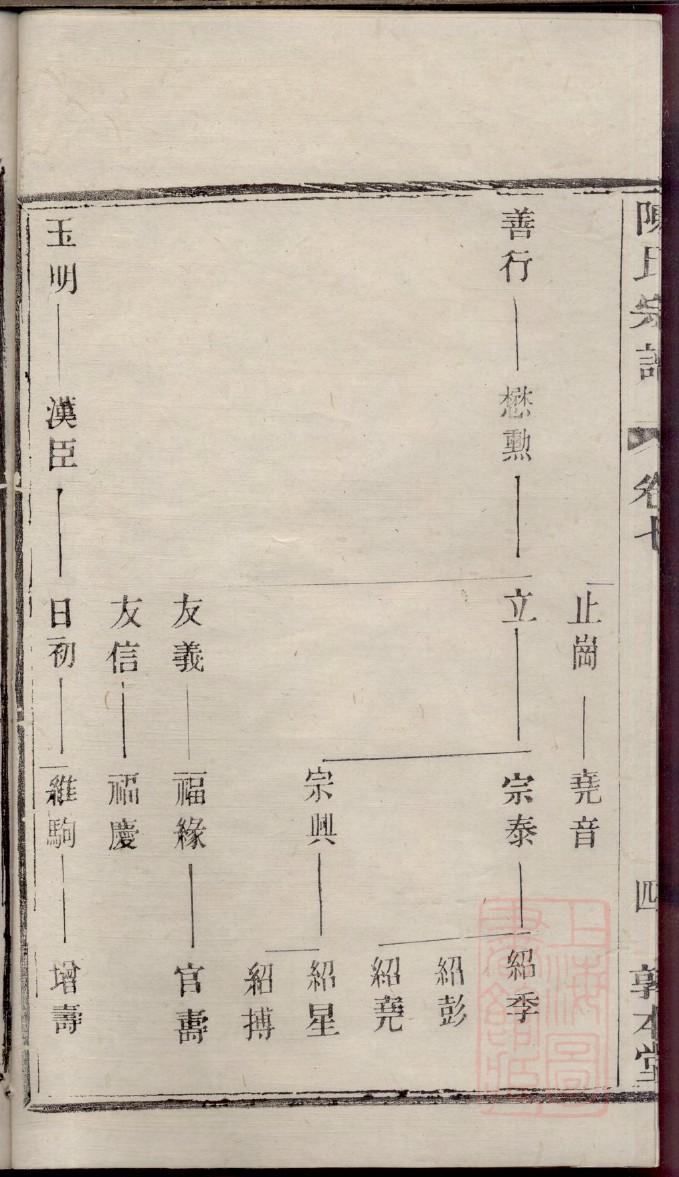 陳氏宗譜 卷七 四 敦本堂
止崗 堯音
善行 懋勳 立 宗泰 紹季
紹彭
紹堯
宗興 紹星
紹搏
友義 福緣 官壽
友信 福慶
玉明 漢臣 日初 維駒 增壽
上海圖書館藏